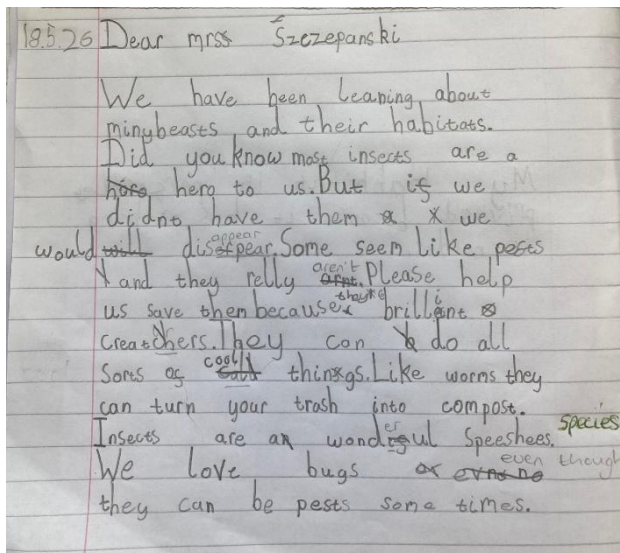 18.5.26 Dear mrss Szczepanski
We have been leaning about
minybeasts and their habitats.
Did you know most insects are a
hero to us. But if we
didnt have them we
would disappear. Some seem like pests
and they relly aren't. Please help
us save them because they're brilliant
creatchers. They can do all
sorts of cool things. Like worms they
can turn your trash into compost.
Insects are an wonderful Speeshees. species
We love bugs even though
they can be pests some times.